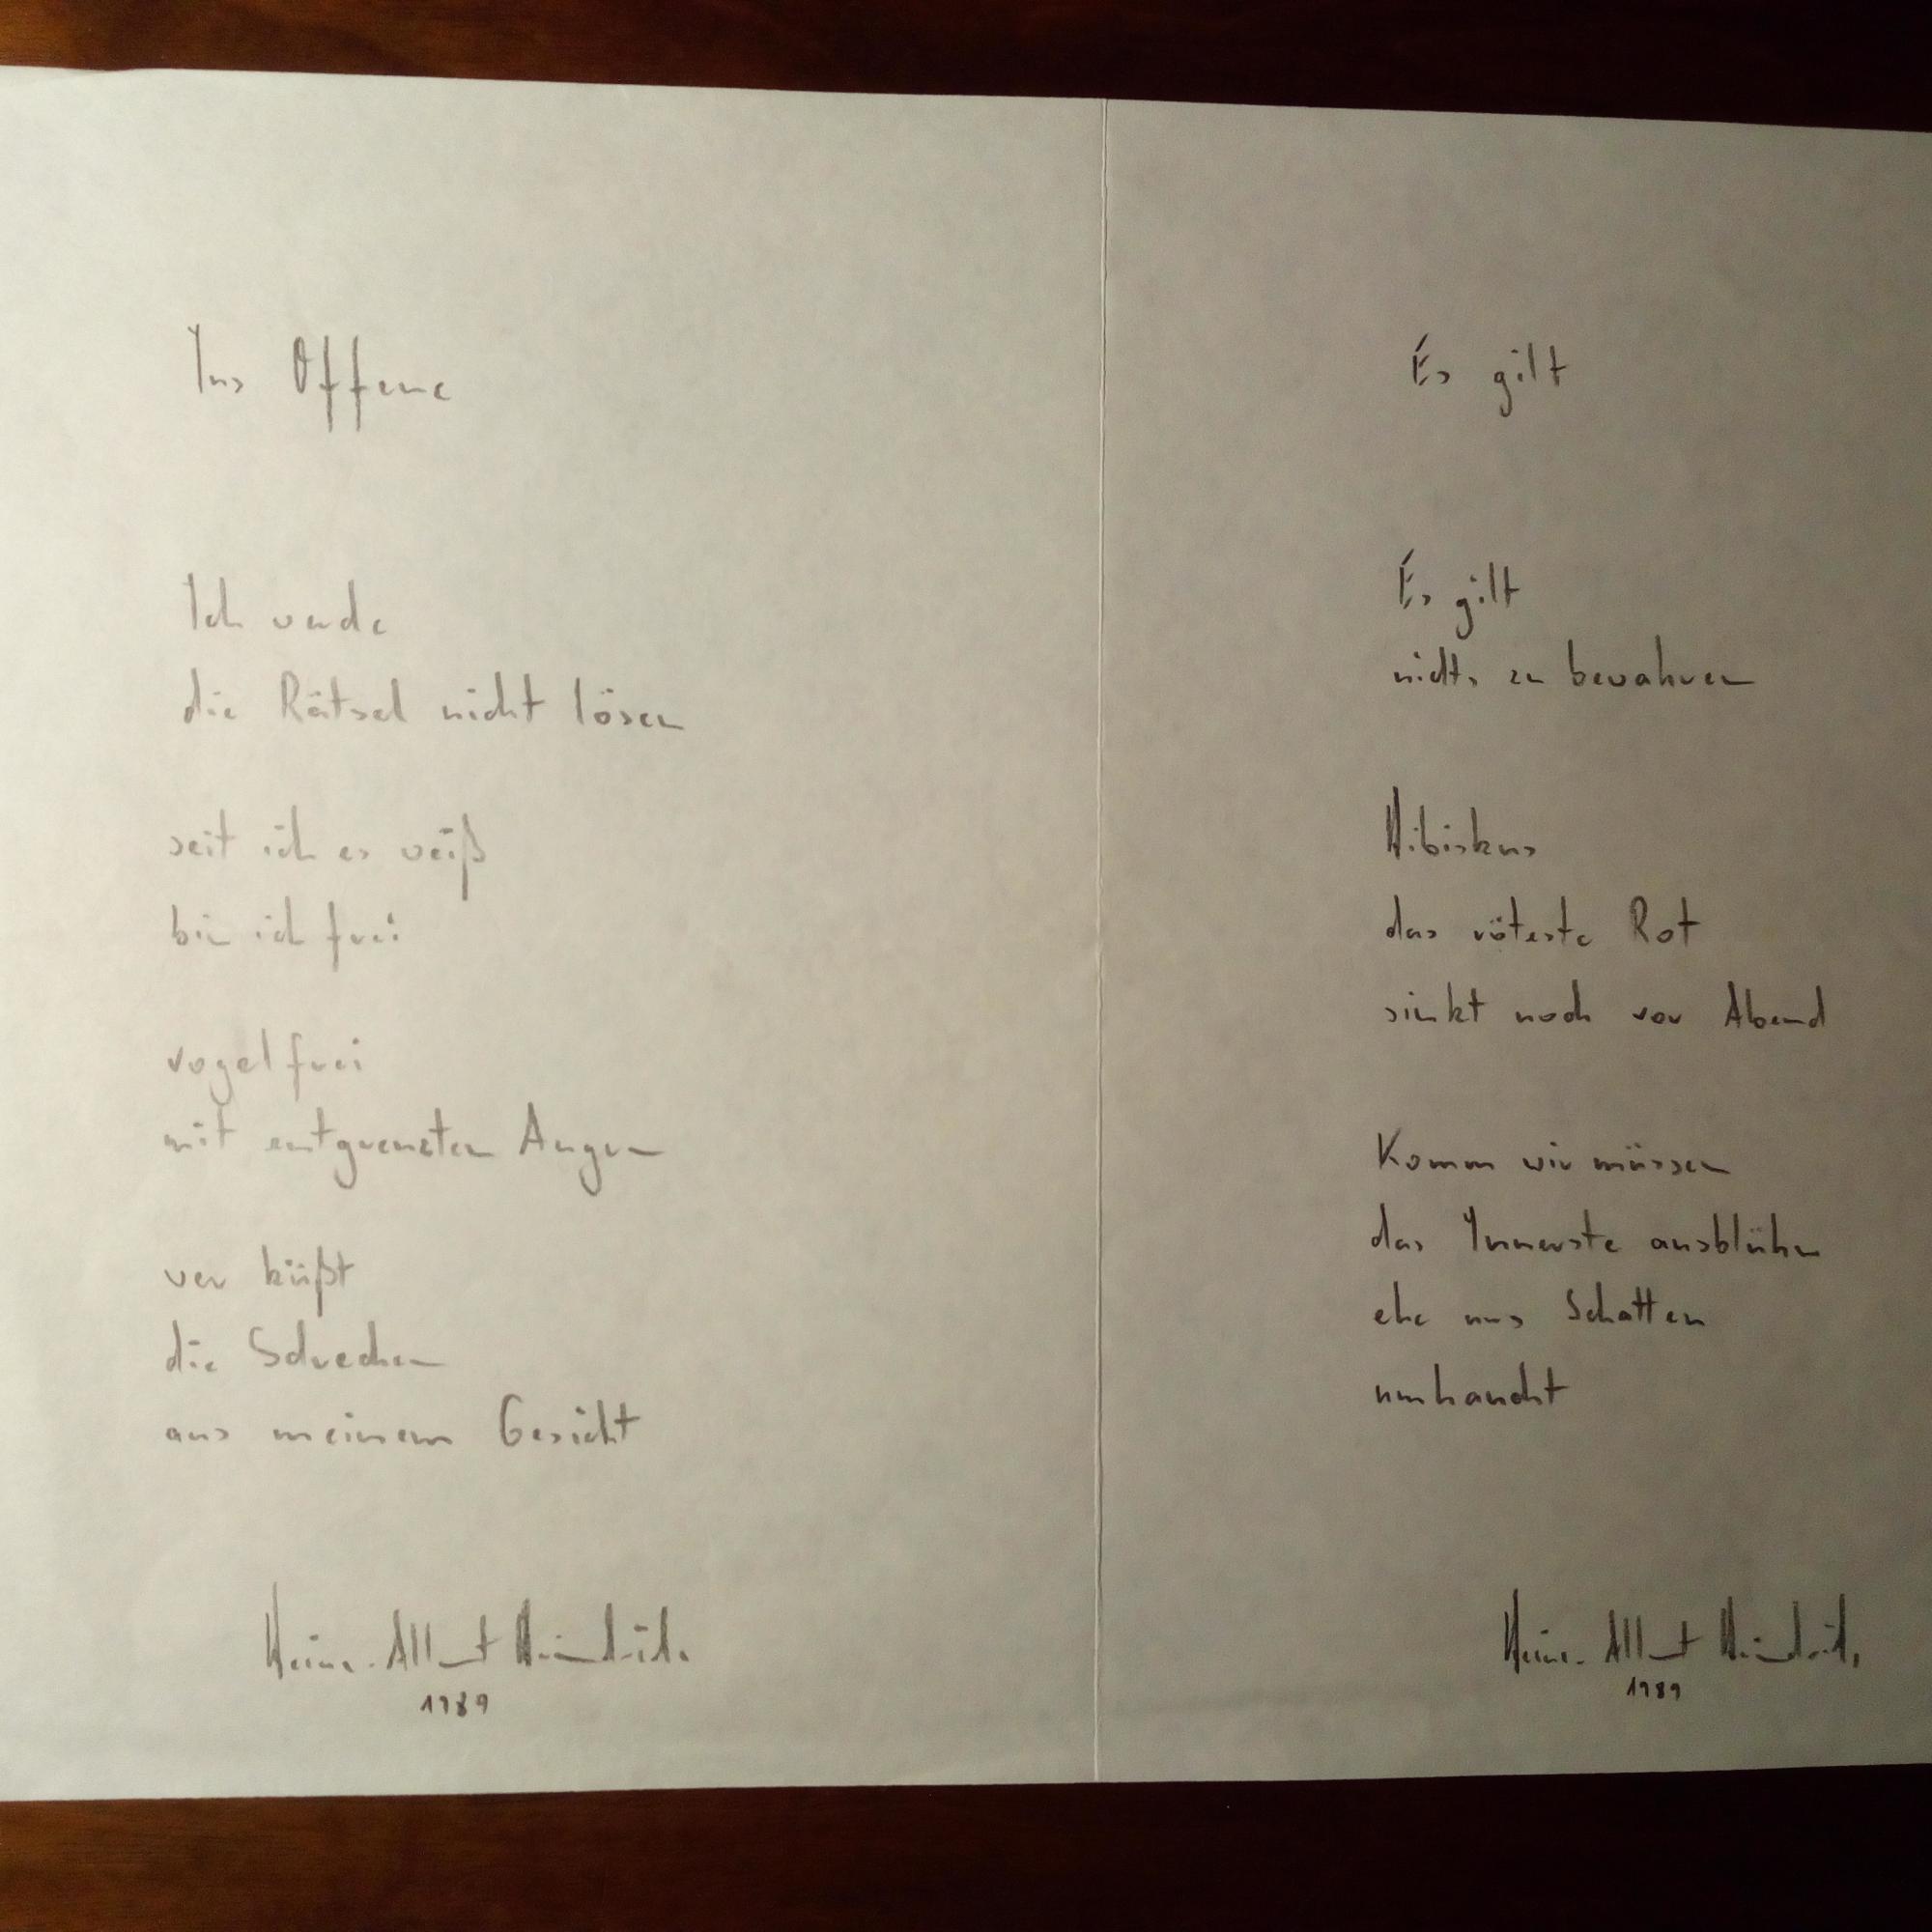 Ins Offene
Ich werde
die Rätsel nicht lösen
seit ich es weiß
bin ich frei
vogelfrei
mit entgrenzten Augen
wer küßt
die Schrecken
aus meinem Gesicht
1989
Es gilt
Es gilt
nichts zu bewahren
Hibiskus
das röteste Rot
sinkt noch vor Abend
Komm wir müssen
das Innerste ausblühn
ehe uns Schatten
umhaucht
1989